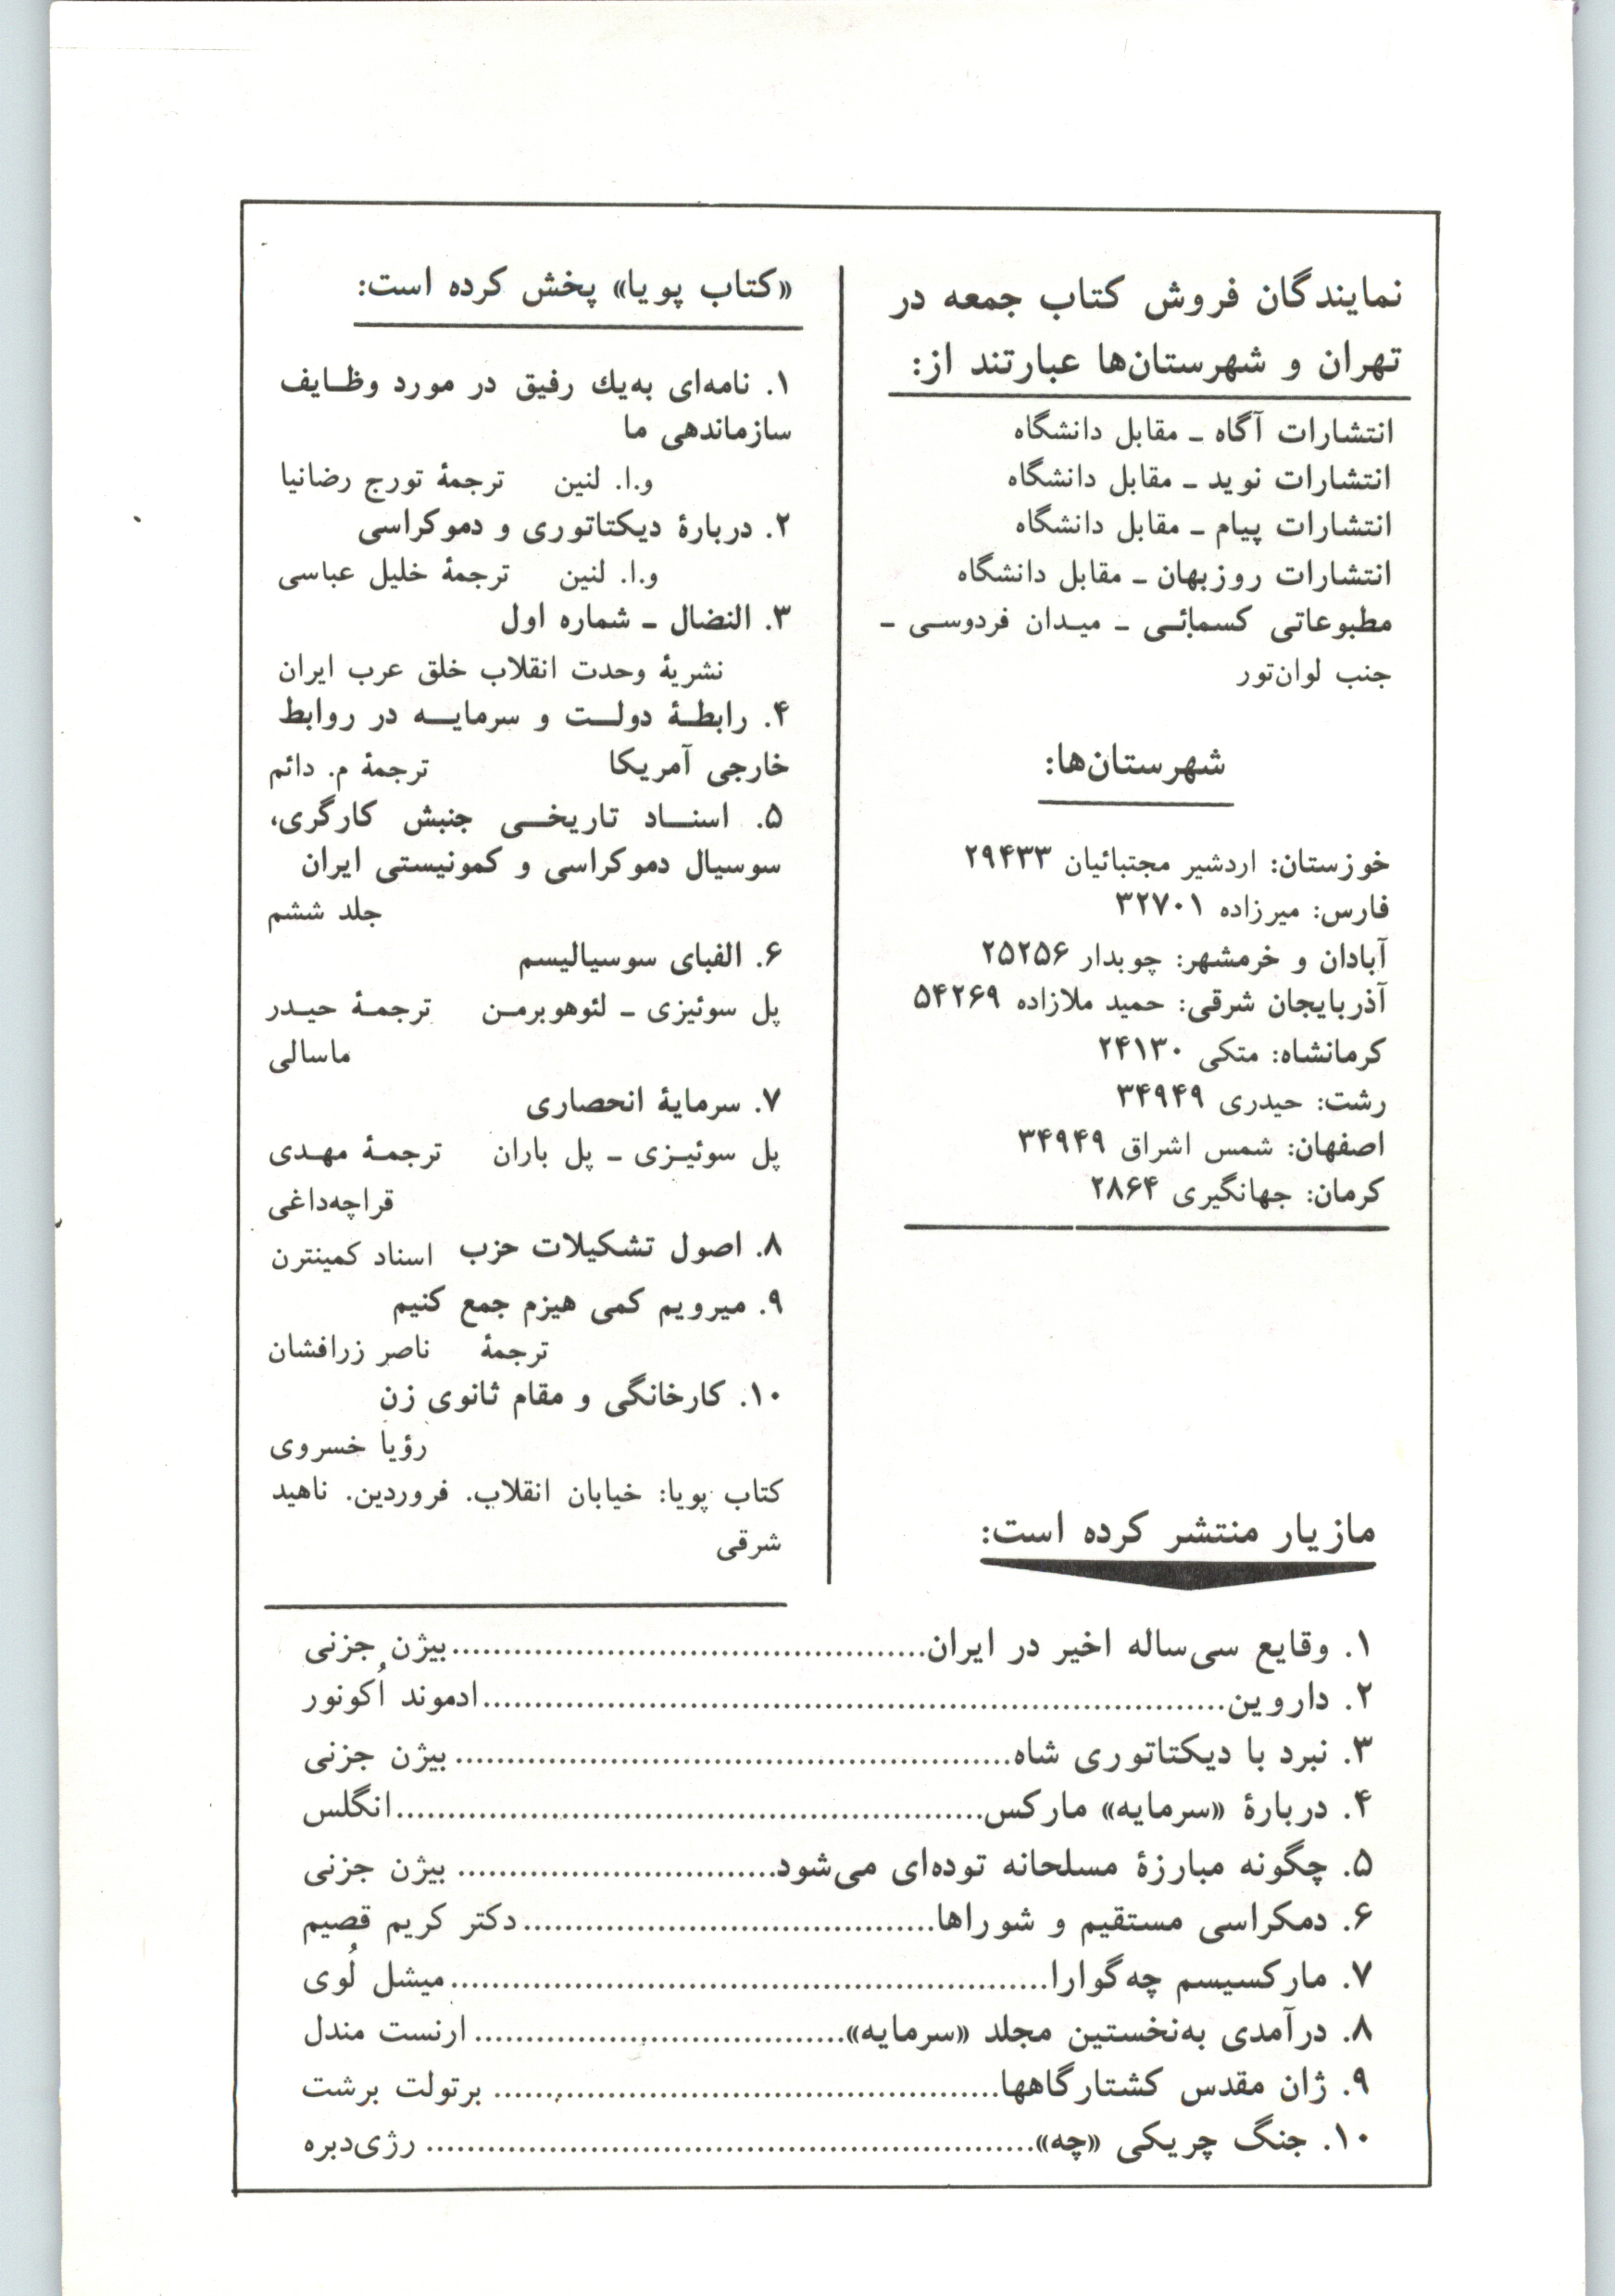 نمایندگان فروش کتاب جمعه در
تهران و شهرستان‌ها عبارتند از:
انتشارات آگاه ـ مقابل دانشگاه
انتشارات نوید ـ مقابل دانشگاه
انتشارات پیام ـ مقابل دانشگاه
انتشارات روزبهان ـ مقابل دانشگاه
مطبوعاتی کسمائی ـ میدان فردوسی ـ
جنب لوان‌تور
شهرستان‌ها:
خوزستان: اردشیر مجتبائیان ۲۹۴۳۳
فارس: میرزاده ۳۲۷۰۱
آبادان و خرمشهر: چوبدار ۲۵۲۵۶
آذربایجان شرقی: حمید ملازاده ۵۴۲۶۹
کرمانشاه: متکی ۲۴۱۳۰
رشت: حیدری ۳۴۹۴۹
اصفهان: شمس اشراق ۳۴۹۴۹
کرمان: جهانگیری ۲۸۶۴
«کتاب پویا» پخش کرده است:
۱. نامه‌ای به‌یك رفیق در مورد وظایف
سازماندهی ما
و.ا. لنین ترجمۀ تورج رضانیا
۲. دربارۀ دیکتاتوری و دموکراسی
و.ا. لنین ترجمۀ خلیل عباسی
۳. النضال ـ شماره اول
نشریۀ وحدت انقلاب خلق عرب ایران
۴. رابطۀ دولت و سرمایه در روابط
خارجی آمریکا ترجمۀ م. دائم
۵. اسناد تاریخی جنبش کارگری،
سوسیال دموکراسی و کمونیستی ایران
جلد ششم
۶. الفبای سوسیالیسم
پل سوئیزی ـ لئوهوبرمن ترجمۀ حیدر
ماسالی
۷. سرمایۀ انحصاری
پل سوئیزی ـ پل باران ترجمۀ مهدی
قراچه‌داغی
۸. اصول تشکیلات حزب اسناد کمینترن
۹. میرویم کمی هیزم جمع کنیم
ترجمۀ ناصر زرافشان
۱۰. کارخانگی و مقام ثانوی زن
رؤیا خسروی
کتاب پویا: خیابان انقلاب. فروردین. ناهید
شرقی
مازیار منتشر کرده است:
۱. وقایع سی‌ساله اخیر در ایران..............................................بیژن جزنی
۲. داروین........................................................................ادموند اُکونور
۳. نبرد با دیکتاتوری شاه......................................................بیژن جزنی
۴. دربارۀ «سرمایه» مارکس.........................................................انگلس
۵. چگونه مبارزۀ مسلحانه توده‌ای می‌شود............................... بیژن جزنی
۶. دمکراسی مستقیم و شوراها........................................دکتر کریم قصیم
۷. مارکسیسم چه‌گوارا..........................................................میشل لُوی
۸. درآمدی به‌نخستین مجلد «سرمایه»....................................ارنست مندل
۹. ژان مقدس کشتارگاهها................................................. برتولت برشت
۱۰. جنگ چریکی «چه»........................................................... رژی‌دبره